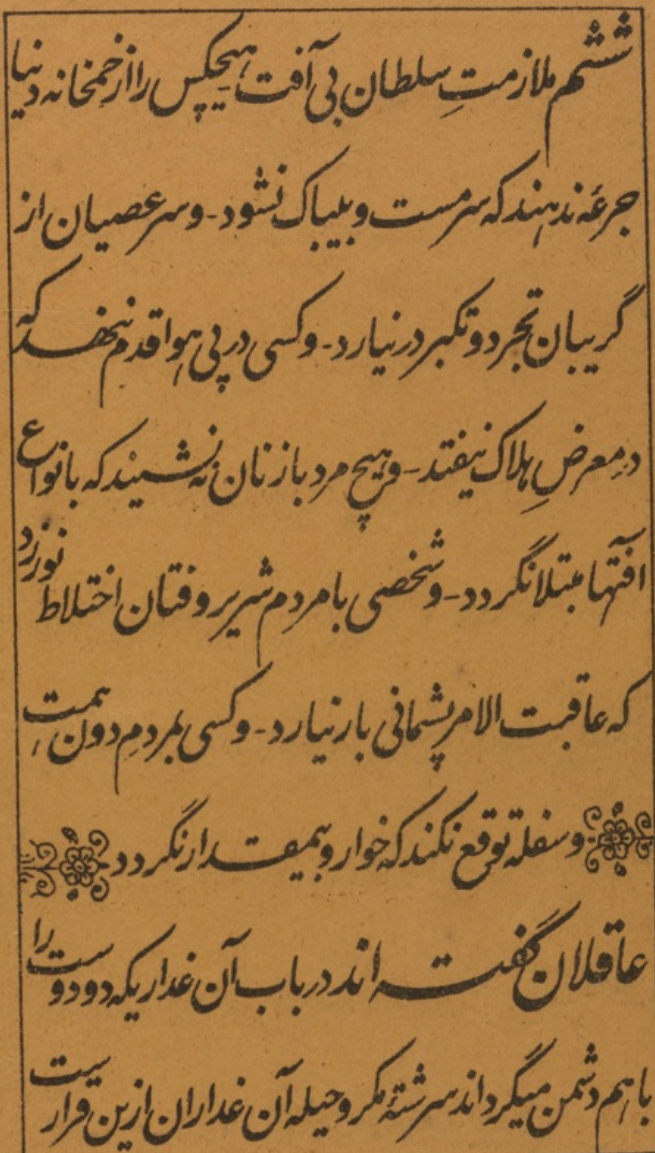 ششم ملازمتِ سلطان بی آفت هیچکس را از خمخانه دنیا
جرعه ندهند که سرمست و بیباک نشود - و سر عصیان از
گریبان تجرد و تکبر در نیارد - و کسی در پی هوا قدم ننهد که
در معرضِ هلاک نیفتد - و هیچ مرد با زنان نه نشیند که بانواع
افتها مبتلا نگردد - و شخصی با مردم شریر و فتان اختلاط نورزد
که عاقبت الامر پشمانی بار نیارد - و کسی بمردمِ دون همت
و سفله توقع نکند که خوار و بیمقدار نگردد
عاقلان گفته اند در باب آن غداریکه دو دوست را
باهم دشمن میگرداند سرشتهٔ مکر و حیله آن غداران ازین قرار ست